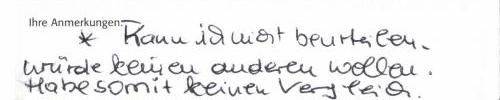 Ihre Anmerkungen:
* Kann ich nicht beurteilen.
würde keinen anderen wollen.
Habe somit keinen Vergleich.